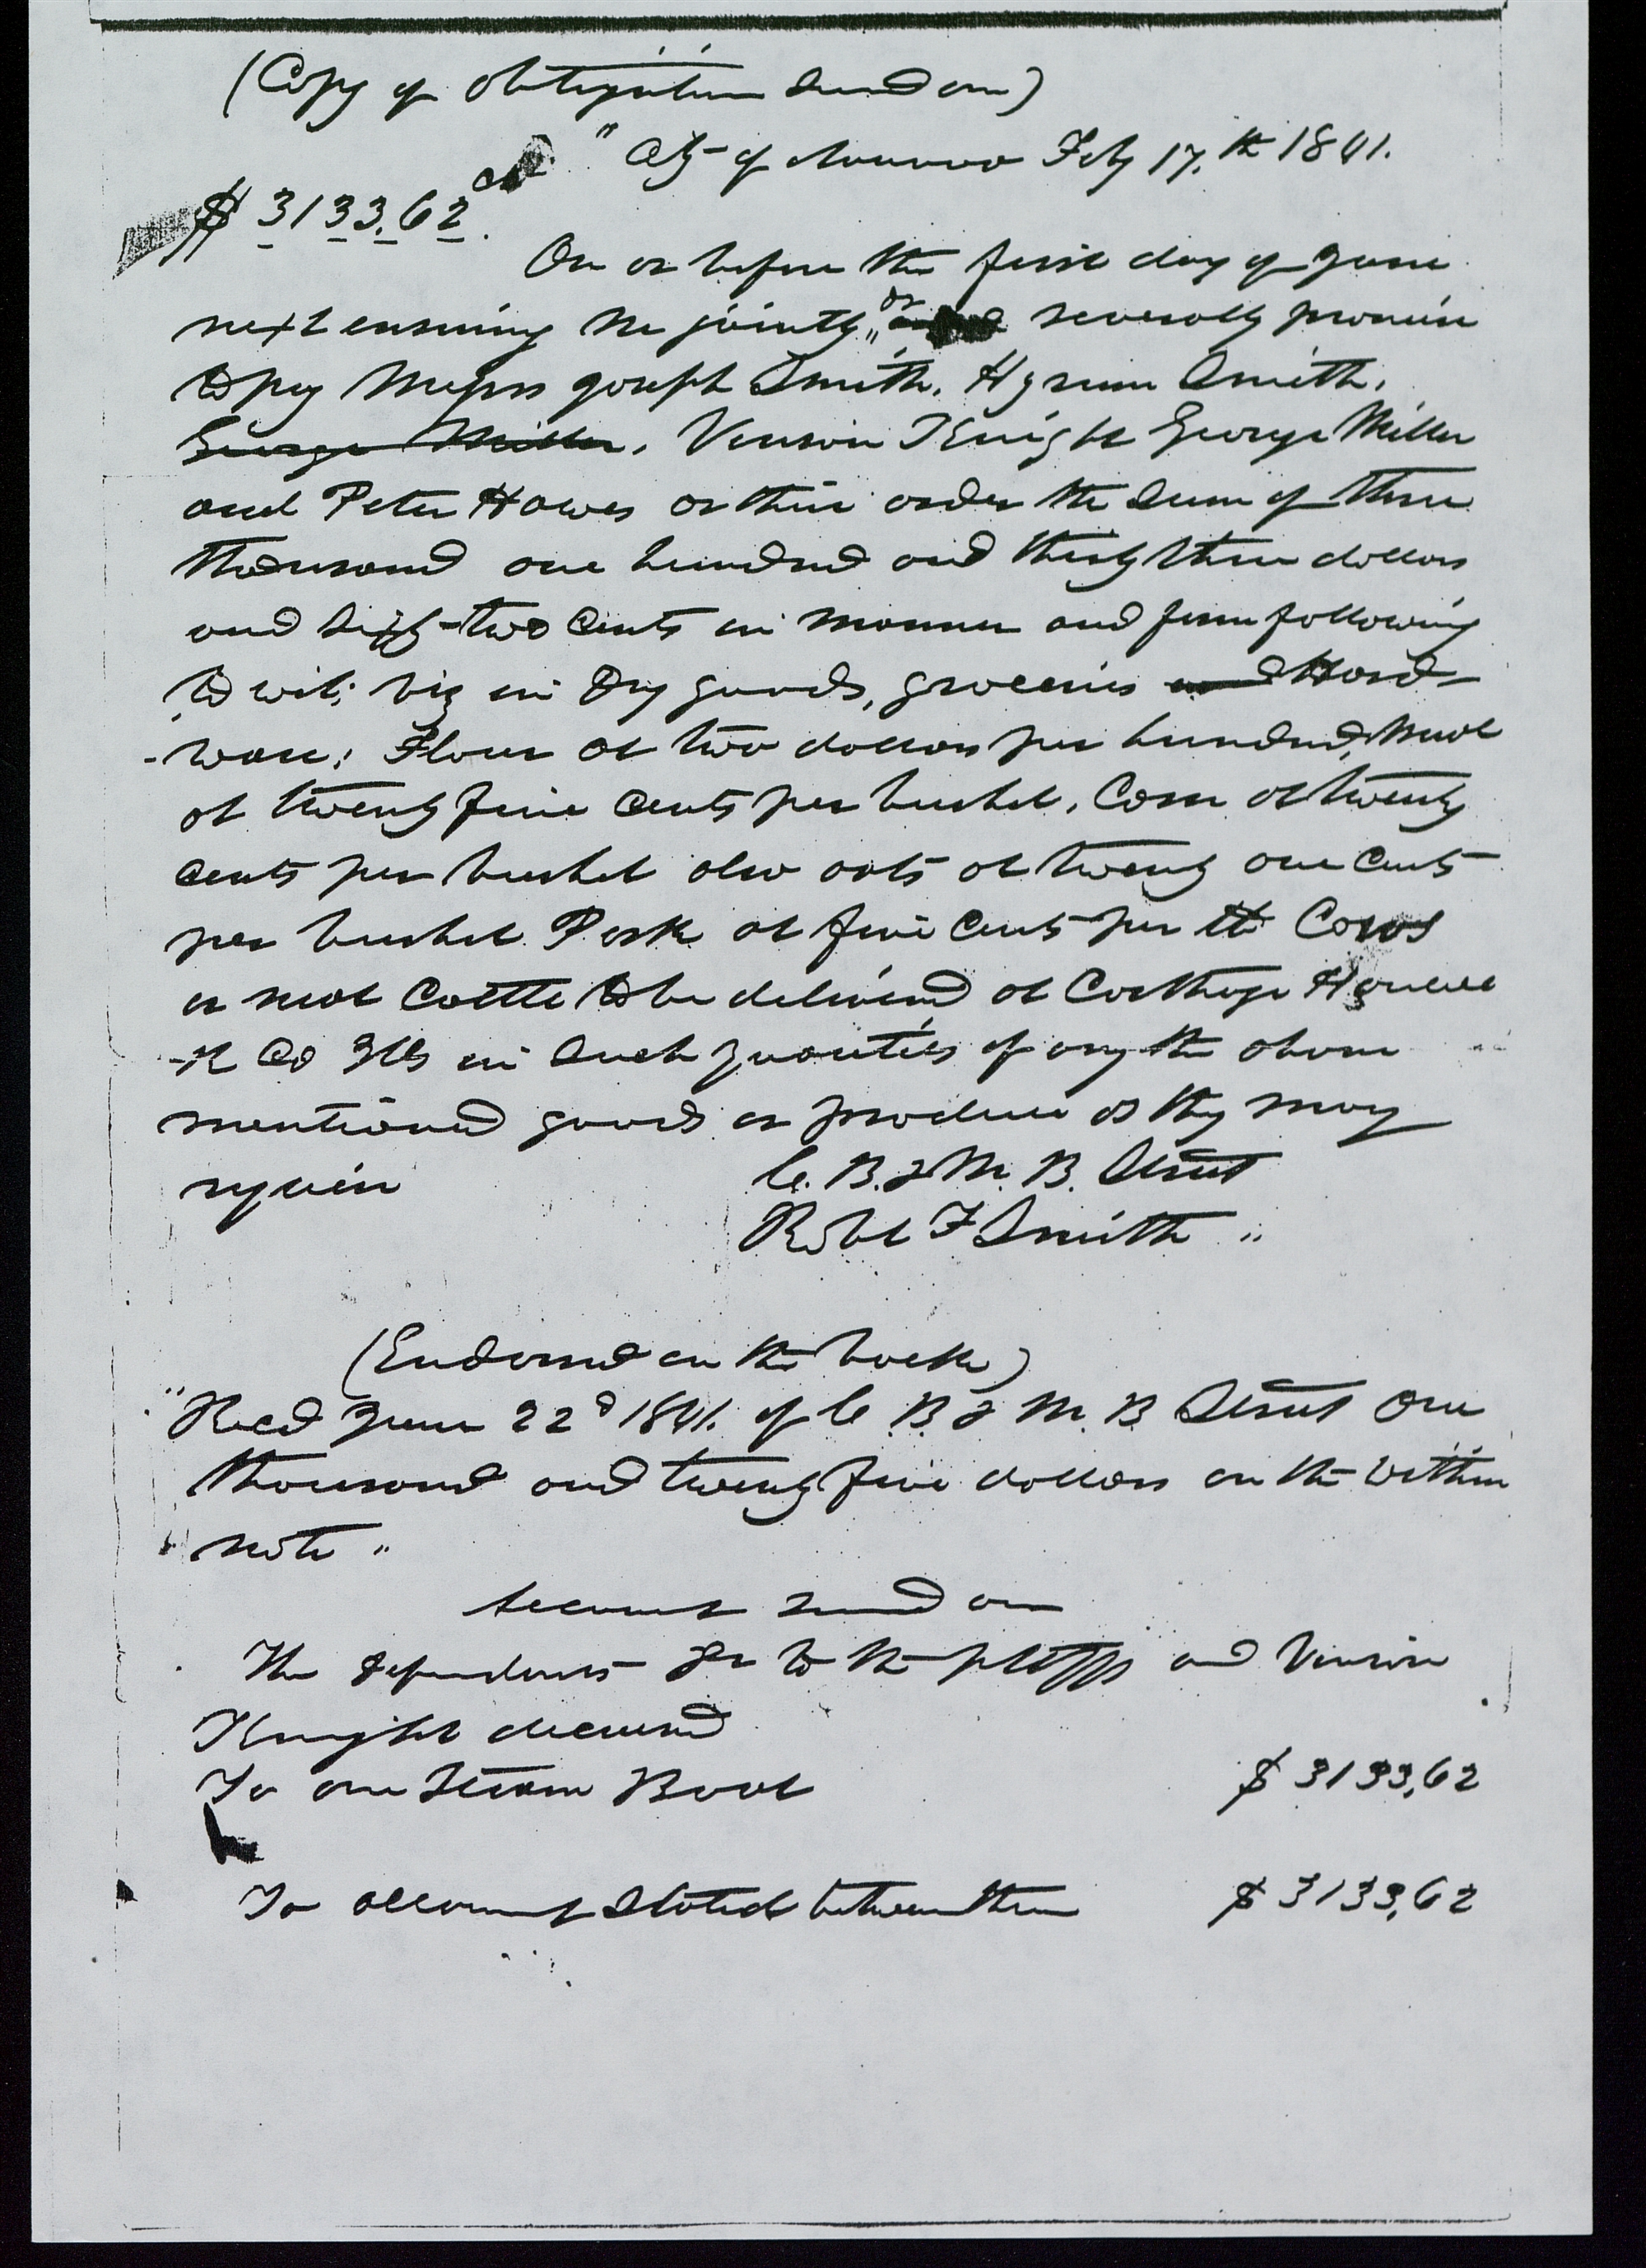 (Copy of obligation sued on)
" City of Nauvoo Feby 17.th 1841.
$ 3133.62
On or before the first day of June
next ensuing we jointly "or severally promise
to pay Messrs Joseph Smith, Hyrum Smith,
George Miller, Vinson Knight George Miller
and Peter Hawes or their order the sum of three
thousand one hundred and thirty three dollars
and sixty-two cents in manner and form following
to wit; viz in Dry goods, groceries and Hard-
-ware; Flour at two dollars per hundred, Meal
at twenty five cents per bushel, Corn at twenty
cents per bushel also oats at twenty one cents
per bushel Pork at five cents per lb Cows
or neat Cattle to be delivered at Carthage Hancoc
-k Co Ills in such quantities of any the above
mentioned goods or produce as they may
require C. B. & M. B. Street
Robt F Smith "
(Endorsed on the back)
"Recd June 22d 1841. of C. B & M. B Street One
thousand and twenty five dollars on the within
note "
Account sued on
The defendants Dr to the pltffs and Vinson
Knight deceased
To one Steam Boat $ 3133,62
To account stated between them $ 3133,62